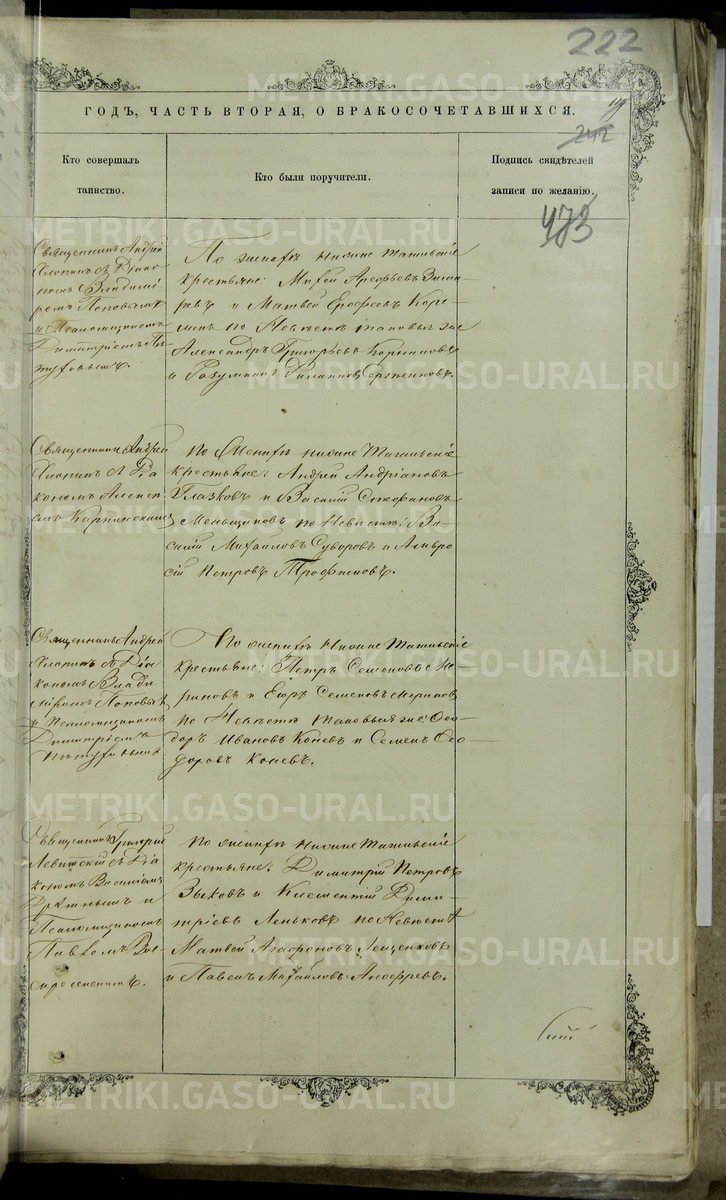 222
ГОДЪ, ЧАСТЬ ВТОРАЯ, О БРАКОСОЧЕТАВШИХСЯ.
242
Кто совершалъ
таинство.
Кто были поручители.
Подпись свидѣтелей
записи по желанію.
473
Священникъ Андрей
Хлопинъ съ Діако
номъ Владимі
ромъ Поповымъ
и Псаломщикомъ
Димитріемъ Пѣ
туховымъ.
По женихѣ Нижне Тагильскіе
крестьяне:
и Матвей Ерофеевъ
по Невѣстѣ таковые же
Александръ Григорьевъ
и
Священникъ Андрей
Хлопинъ съ Діа
кономъ Алексѣ
емъ Карпинскимъ
По Женихѣ Нижне Тагильскіе
крестьяне: Андрей Андріановъ
Глазковъ и Василій Стефановъ
Меньщиковъ по Невѣстѣ: Ва
силій Михайловъ Суворовъ и Амвро
сій Петровъ Трофимовъ.
Священникъ Андрей
Хлопинъ съ Діа
кономъ Влади
міромъ Поповымъ
и Псаломщикомъ
Димитріемъ
Пѣтуховымъ
По женихѣ Нижне Тагильскіе
крестьяне: Петръ Семеновъ
и Егоръ Семеновъ
по Невѣстѣ таковые же: Ѳео
доръ Ивановъ Коневъ и Семенъ Ѳео
доровъ Коневъ.
Священникъ Григорій
Левитскій съ Діа
кономъ Василіемъ
и
Псаломщикомъ
Павломъ Вос
кресенскимъ.
По женихѣ Нижне Тагильскіе
крестьяне: Димитрій Петровъ
Зыковъ и Климентій Дими
тріевъ Леньковъ по Невѣстѣ
Матвей Агафоновъ Лещенковъ
и Павелъ Михайловъ
METRIKI.GASO-URAL.RU